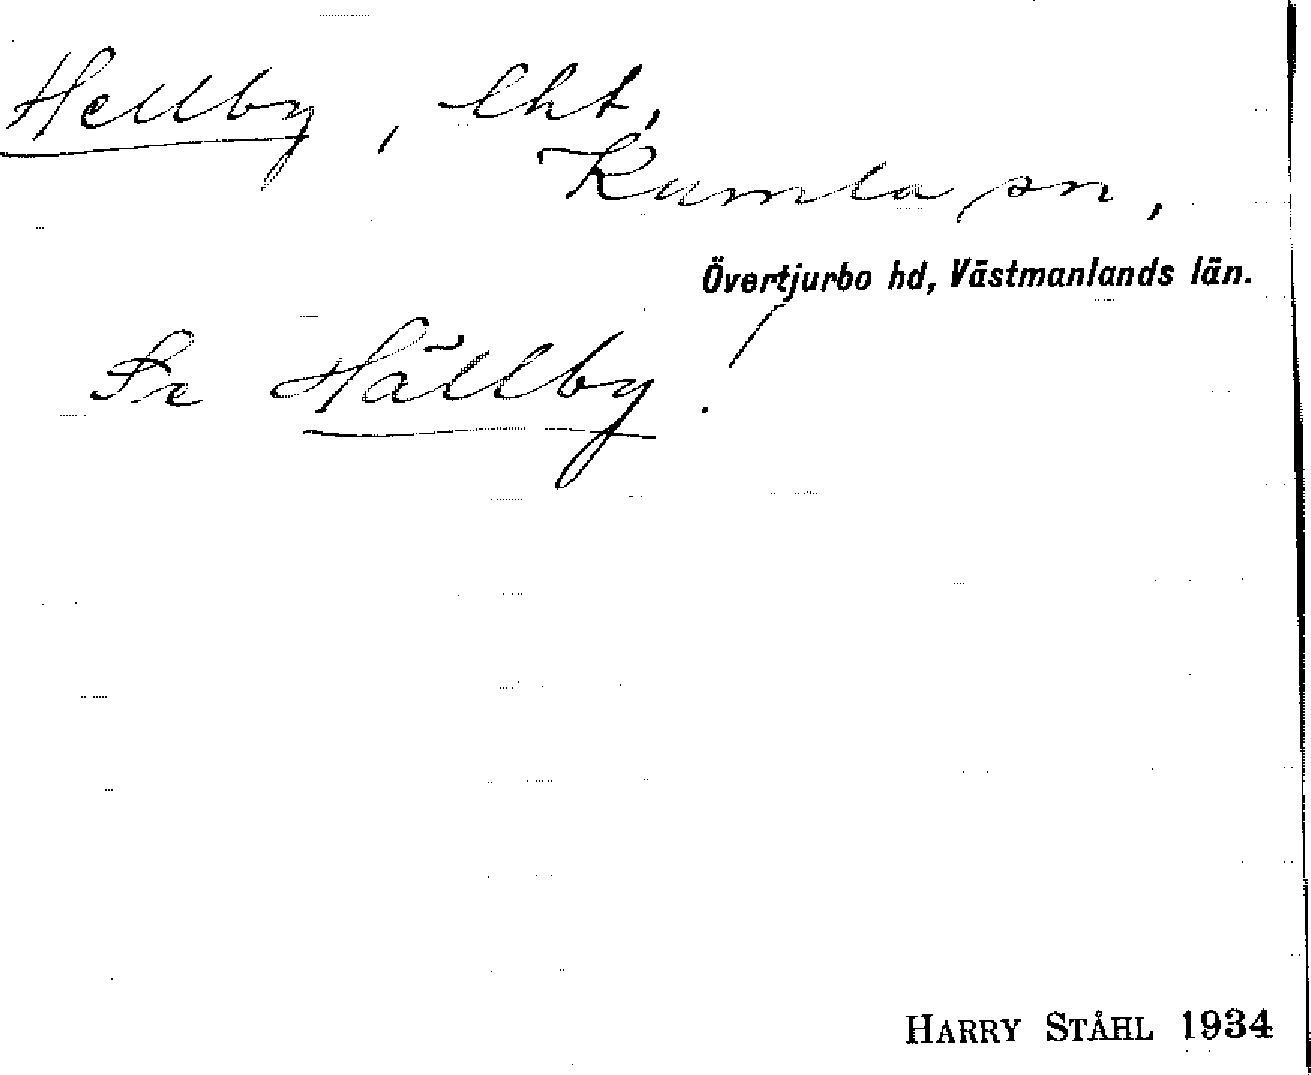 Hellby, lht,
Kumla sn,
Övertjurbo hd, Västmanlands län.
Se Hällby!
HARRY STÅHL 1934